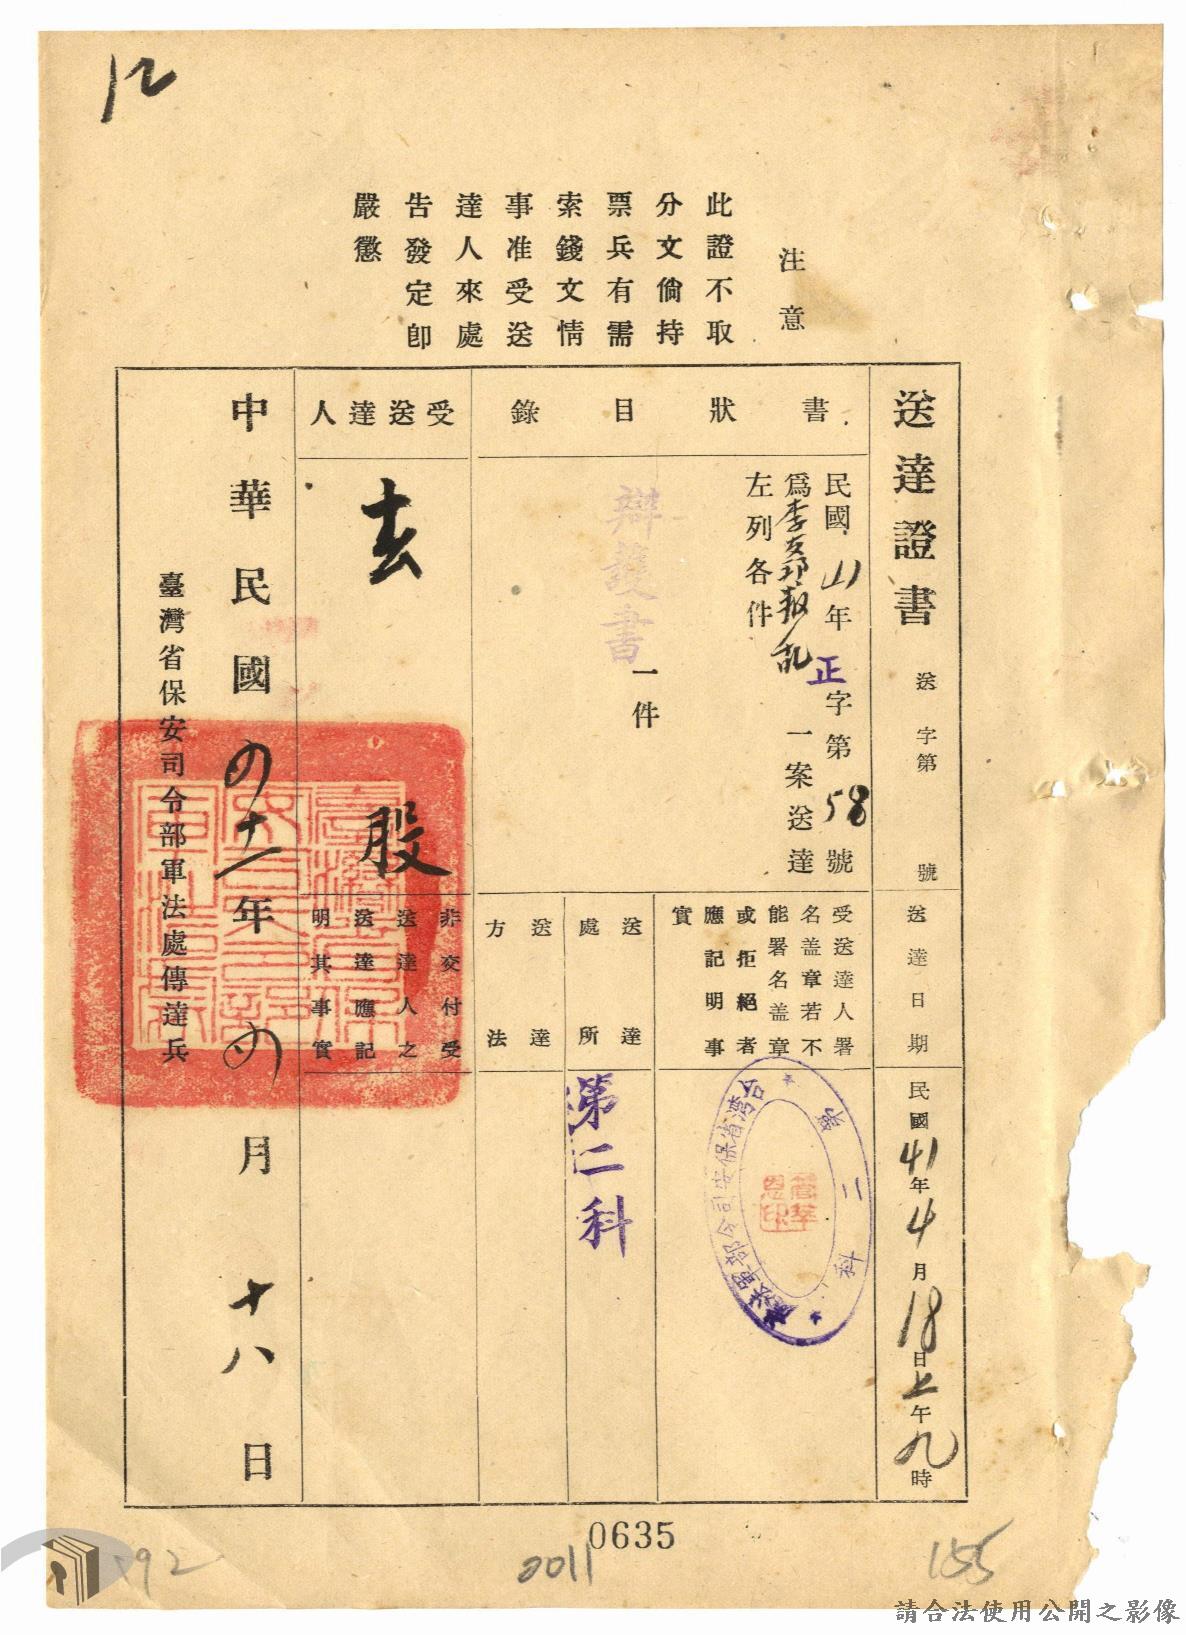 12
注意
此證不取
分文倘持
票兵有需
索錢文情
事准受送
達人來處
告發定卽
嚴懲
送達證書
送字第 號
書狀目錄
民國41年正字第58號
爲李友邦叛乱一案送達
左列各件
辯護書一件
受送達人
玄股
送達日期
民國41年4月18日上午九時
受送達人署
名盖章若不
能署名盖章
或拒絕者
應記明事
實
台灣省保安司令部軍法處
第二科
送達處所
第二科
送達方法
非交付受
送達人之
送達應記
明其事實
中華民國四十一年四月十八日
臺灣省保安司令部軍法處傳達兵
0635
92
0011
155
請合法使用公開之影像